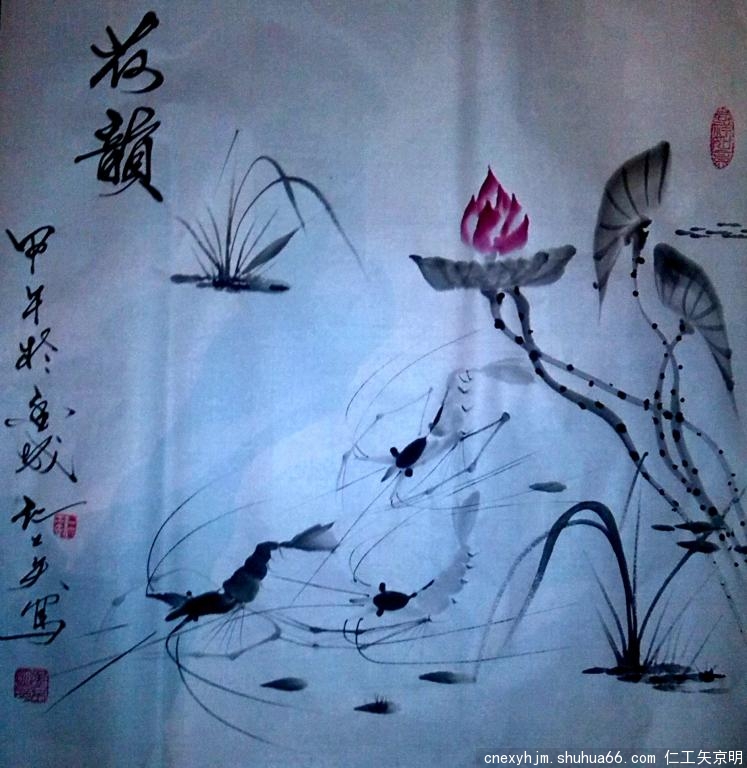 荷韻
甲午於金城
仁工矢寫
cnexyhjm.shuhua66.com 仁工矢京明